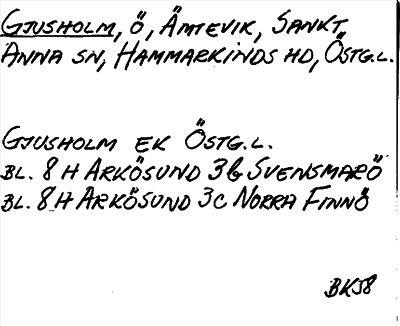 GJUSHOLM, Ö, ÄMTEVIK, SANKT
ANNA SN, HAMMARKINDS HD, ÖSTG.L.
GJUSHOLM EK ÖSTG.L.
BL. 8 H ARKÖSUND 3b SVENSMARÖ
BL. 8 H ARKÖSUND 3C NORRA FINNÖ
BK58